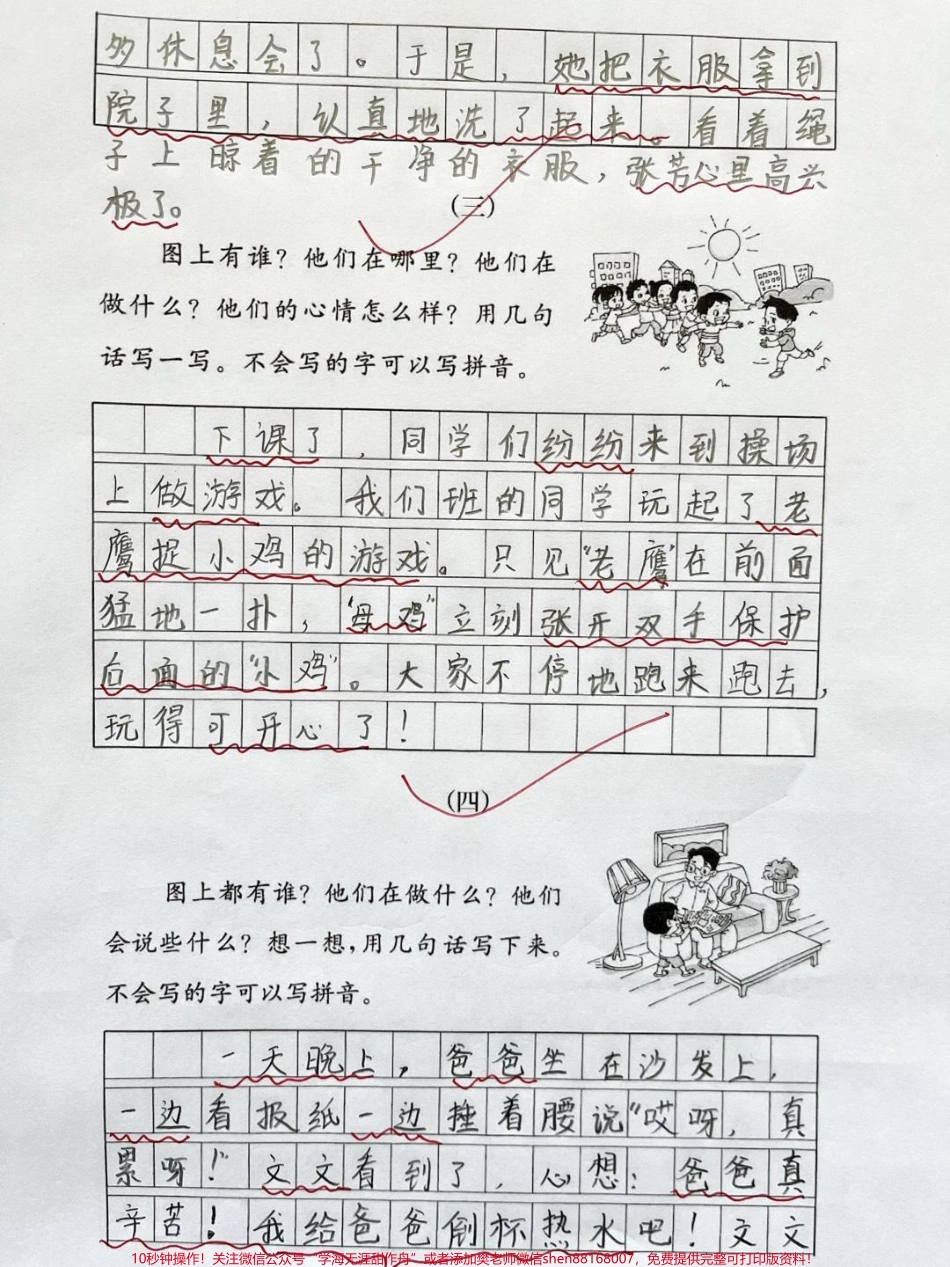 多休息会了。于是，她把衣服拿到
院子里，认真地洗了起来。看着绳
子上晾着的干净的衣服，张芳心里高兴
极了。
(三)
图上有谁？他们在哪里？他们在
做什么？他们的心情怎么样？用几句
话写一写。不会写的字可以写拼音。
下课了，同学们纷纷来到操场
上做游戏。我们班的同学玩起了老
鹰捉小鸡的游戏。只见“老鹰”在前面
猛地一扑，“母鸡”立刻张开双手保护
后面的“小鸡”。大家不停地跑来跑去，
玩得可开心了！
(四)
图上都有谁？他们在做什么？他们
会说些什么？想一想，用几句话写下来。
不会写的字可以写拼音。
一天晚上，爸爸坐在沙发上，
一边看报纸一边捶着腰说“哎呀，真
累呀！”文文看到了，心想：爸爸真
辛苦！我给爸爸倒杯热水吧！文文
10秒钟操作！关注微信公众号“学海天涯甜作舟”或者添加樊老师微信shen88168007，免费提供完整可打印版资料！